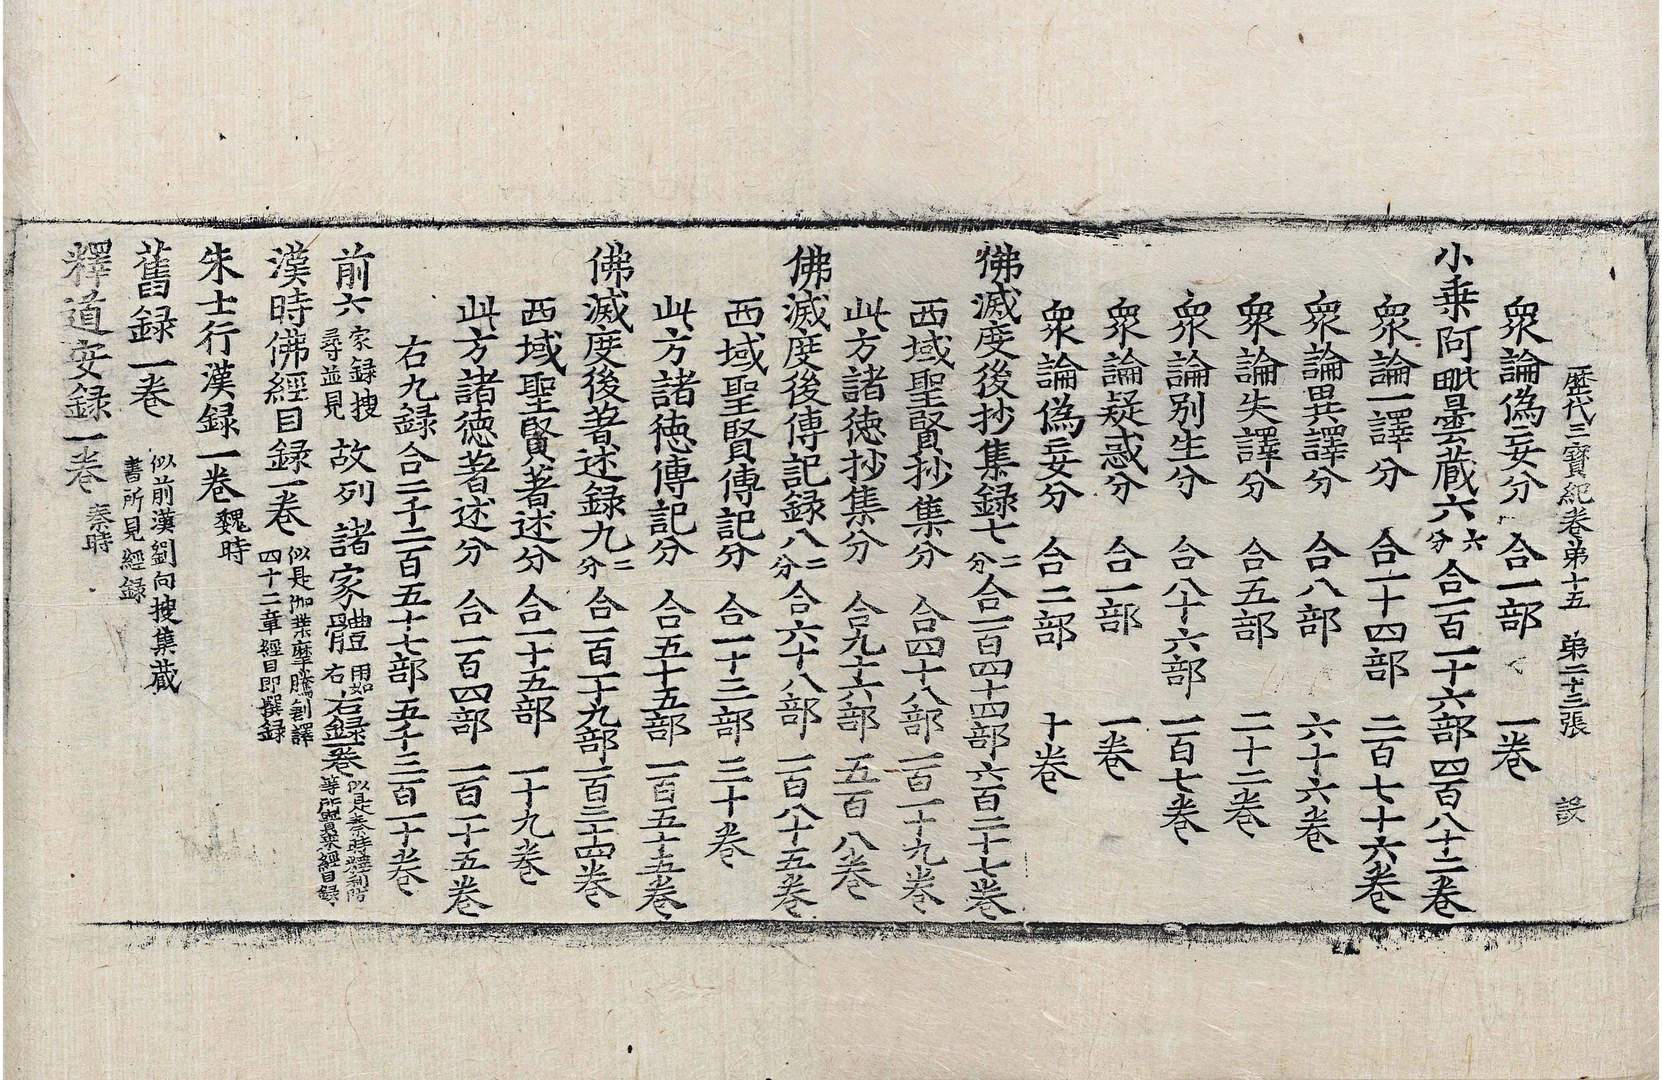 歷代三寶紀卷第十五　第二十三張　設
衆論僞妄分　合一部　一卷
小乗阿毗曇藏六六分合一百一十六部四百八十二卷
衆論一譯分　合一十四部　二百七十六卷
衆論異譯分　合八部　六十六卷
衆論失譯分　合五部　二十二卷
衆論别生分　合八十六部　一百七卷
衆論疑惑分　合一部　一卷
衆論僞妄分　合二部　十卷
佛滅度後抄集録七二分合一百四十四部六百二十七卷
西域聖賢抄集分　合四十八部　一百一十九卷
此方諸徳抄集分　合九十六部　五百八卷
佛滅度後傳記録八二分合六十八部　一百八十五卷
西域聖賢傳記分　合一十三部　三十卷
此方諸徳傳記分　合五十五部　一百五十五卷
佛滅度後著述録九二分合一百一十九部一百三十四卷
西域聖賢著述分　合一十五部　一十九卷
此方諸徳著述分　合一百四部　一百一十五卷
右九録合二千二百五十七部五千三百一十卷
前六家録搜尋並見故列諸家體用如右
古録一卷似是秦時釋利防等所齎來經目録
漢時佛經目録一卷似是迦葉摩騰創譯四十二章經目即撰録
朱士行漢録一卷魏時
舊録一卷似前漢劉向搜集藏書所見經録
釋道安録一卷秦時